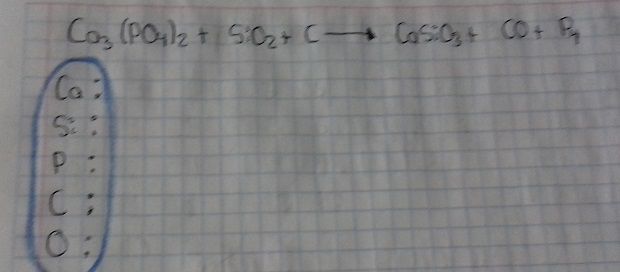 Ca₃(PO₄)₂ + SiO₂ + C ⟶ CaSiO₃ + CO + P₄
Ca :
Si :
P :
C :
O :